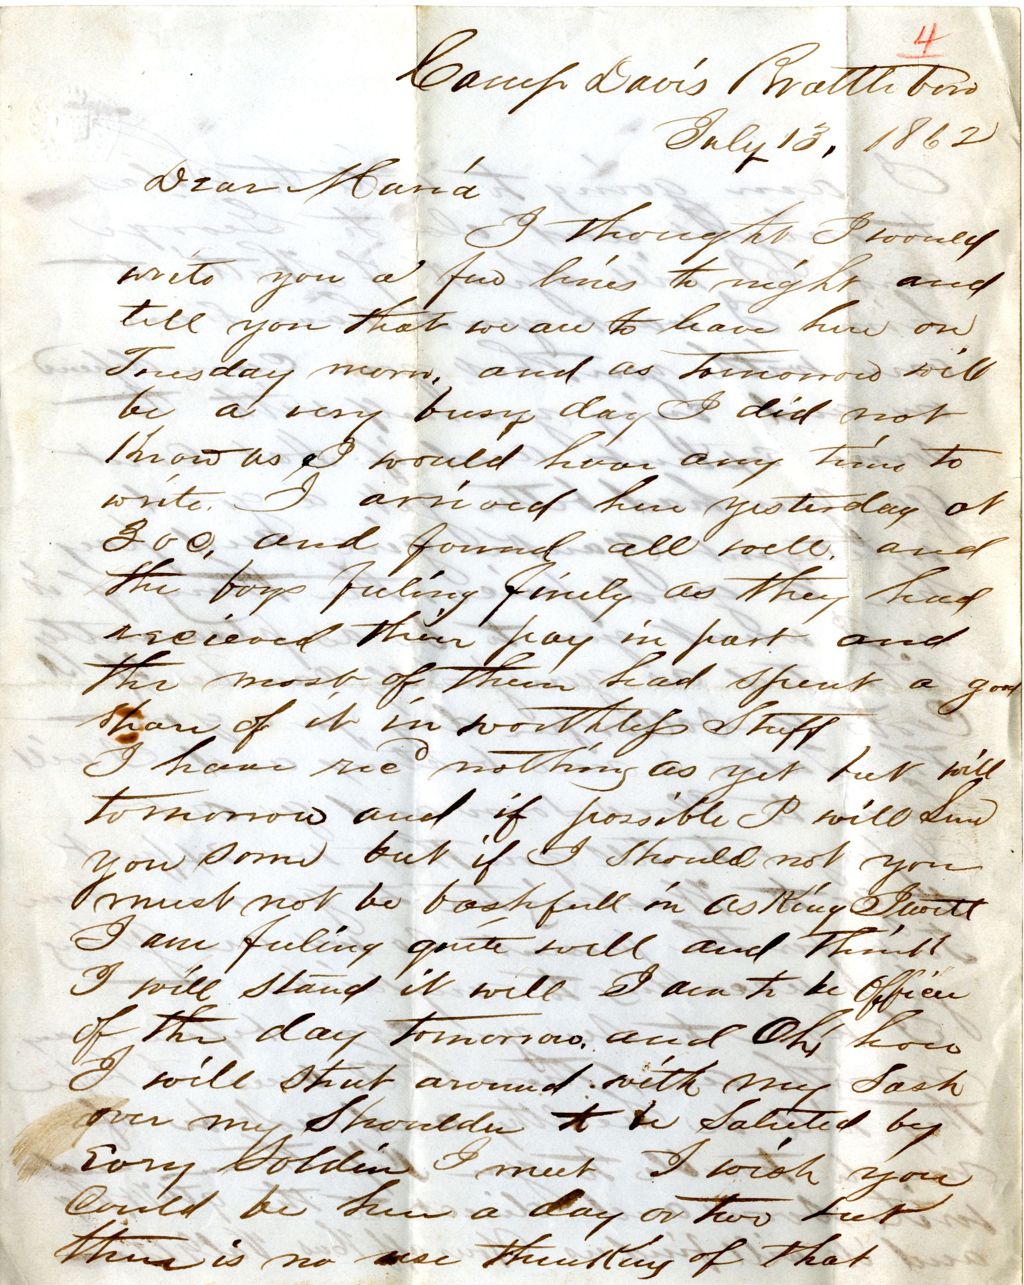 4
Camp Davis Brattleboro
July 13, 1862
Dear Maria
I thought I would
write you a few lines to night and
tell you that we are to leave here on
Tuesday morn, and as tomorrow will
be a very busy day I did not
Know as I would have any time to
write. I arrived here yesterday at
3 oc, and found all well, and
the boys feeling finely as they had
recieved their pay in part and
the most of them had spent a good
share of it in worthless Stuff
I have recd nothing as yet but will
tomorrow and if possible I will Send
you some but if I should not you
must not be bashfull in asking
I am feeling quite well and think
I will stand it well I am to be Officer
of the day tomorrow. and Oh, how
I will strut around with my Sash
over my Shoulder to be Saluted by
Evry Soldier I meet I wish you
Could be here a day or two but
there is no use thinking of that